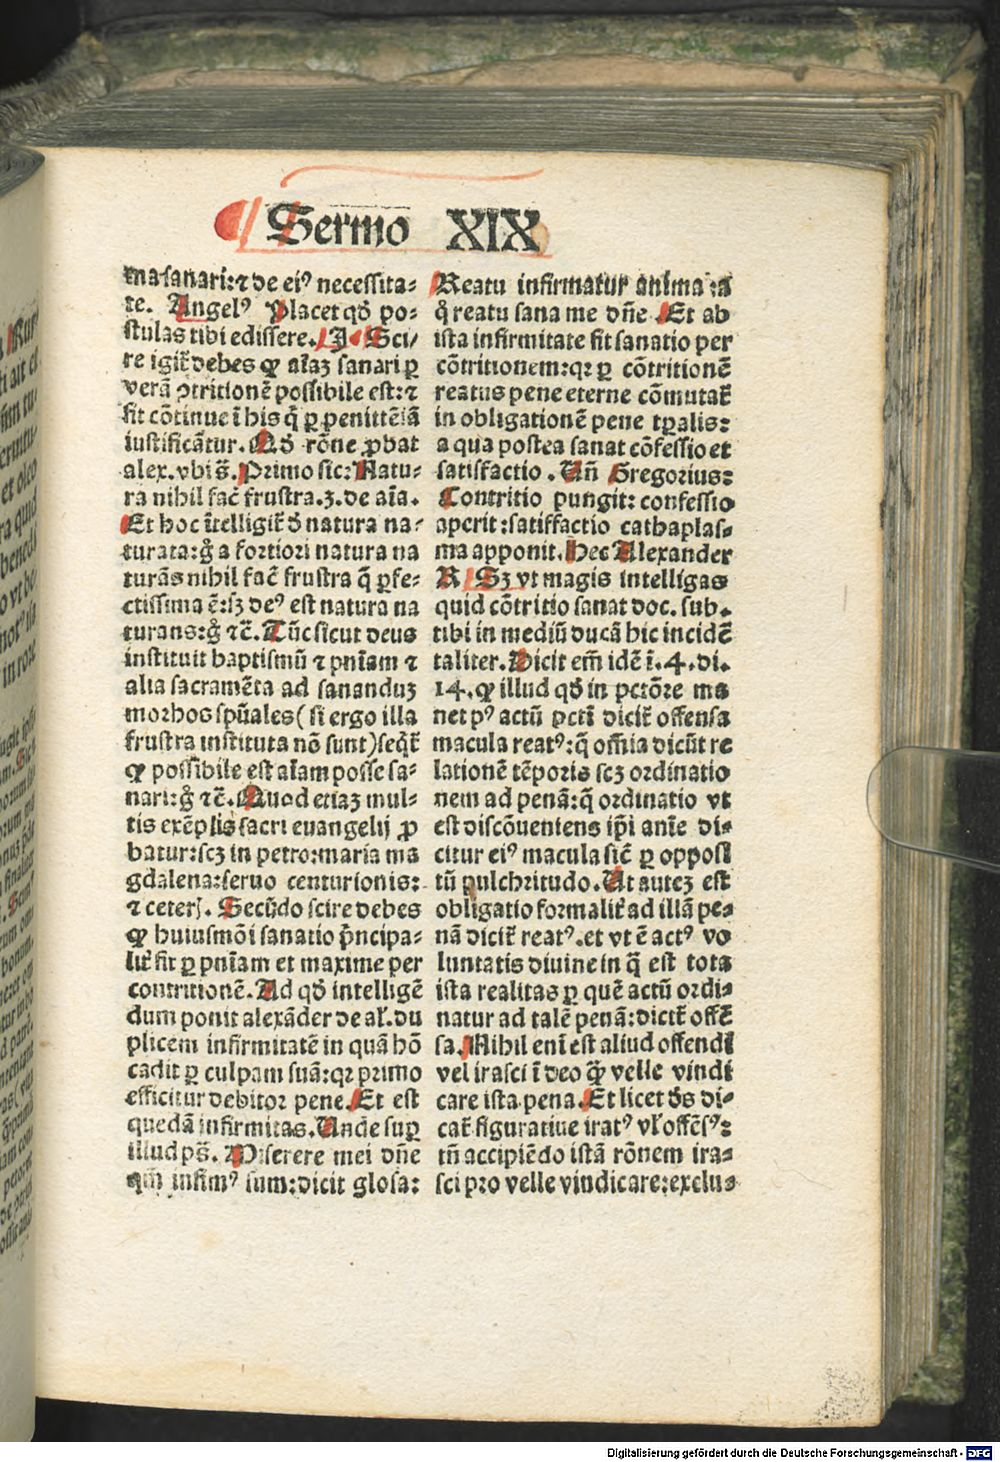 Sermo XIX
ma sanari: ⁊ de eiꝰ necessita⸗
te. Angelꝰ Placet qđ po⸗
stulas tibi edissere. Sci⸗
re igit᷑ debes ꝙ aīaꝫ sanari ꝑ
verā ↄtritionē possibile est: ⁊
sit cōtinue ī his q̄ ꝑ penittētiā
iustificātur. Ad rōne ꝓbat
alex. vbi s̄. Primo sic: Natu⸗
ra nihil fac̄ frustra. 3. de aīa.
Et hoc ītelligit᷑ đ natura na⸗
turata: g̊ a fortiori natura na
turās nihil fac̄ frustra q̄ ꝑfe⸗
ctissima ē: sꝫ deꝰ est natura na
turans: g̊ ⁊c̄. Tūc sicut deus
instituit baptismū ⁊ pn̄iam ⁊
alia sacramēta ad sananduꝫ
morbos spūales (si ergo illa
frustra instituta nō sunt) seq̄t᷑
ꝙ possibile est aīam posse sa⸗
nari: g̊ ⁊c̄. Quod etiaꝫ mul⸗
tis exēplis sacri euangelij ꝓ
batur: scꝫ in petro: maria ma
gdalena: seruo centurionis:
⁊ ceter. Secūdo scire debes
ꝙ huiusmōi sanatio p̄ncipa⸗
lit᷑ fit ꝑ pn̄iam et maxime per
contritionē. Ad qđ intelligē
dum ponit alexāder de al. du
plicem infirmitatē in quā hō
cadit ꝑ culpam suā: qꝛ primo
efficitur debitor pene. Et est
quedā infirmitas. Unde suꝑ
illud ps̄. Miserere mei dn̄e
qm̄ infirmꝰ sum: dicit glosa:
Reatu infirmatur anima
q̄ reatu sana me dn̄e. Et ab
ista infirmitate fit sanatio per
cōtritionem: qꝛ ꝑ cōtritionē
reatus pene eterne cōmutat᷑
in obligationē pene tꝑalis:
a qua postea sanat cōfessio et
satisfactio. Un̄ Gregorius:
Contritio pungit: confessio
aperit: satiffactio cathaplas⸗
ma apponit. Hec Alexander
R Sꝫ vt magis intelligas
quid cōtritio sanat doc. sub.
tibi in mediū ducā hic incidē
taliter. Dicit em̄ idē ī. 4. di.
14. ꝙ illud qđ in pctōre ma
net pꝰ actū pcti dicit᷑ offensa
macula reatꝰ: q̄ om̄ia dicūt re
lationē tēporis scꝫ ordinatio
nem ad penā: q̄ ordinatio vt
est discōueniens ip̄i anīe di⸗
citur eiꝰ macula sic̄ ꝑ opposi
tū pulchritudo. Ut auteꝫ est
obligatio formalit᷑ ad illā pe⸗
nā dicit᷑ reatꝰ. et vt ē actꝰ vo
luntatis diuine in q̄ est tota
ista realitas ꝑ quē actū ordi⸗
natur ad talē penā: dicit᷑ offē
sa. Nihil eni est aliud offendi
vel irasci ī deo q̄ꝫ velle vindi
care ista pena. Et licet đs di⸗
cat᷑ figuratiue iratꝰ vl᷑ offēsꝰ:
tn̄ accipiēdo istā rōnem ira⸗
sci pro velle vindicare: exclus⸗
Digitalisierung gefördert durch die Deutsche Forschungsgemeinschaft - DFG